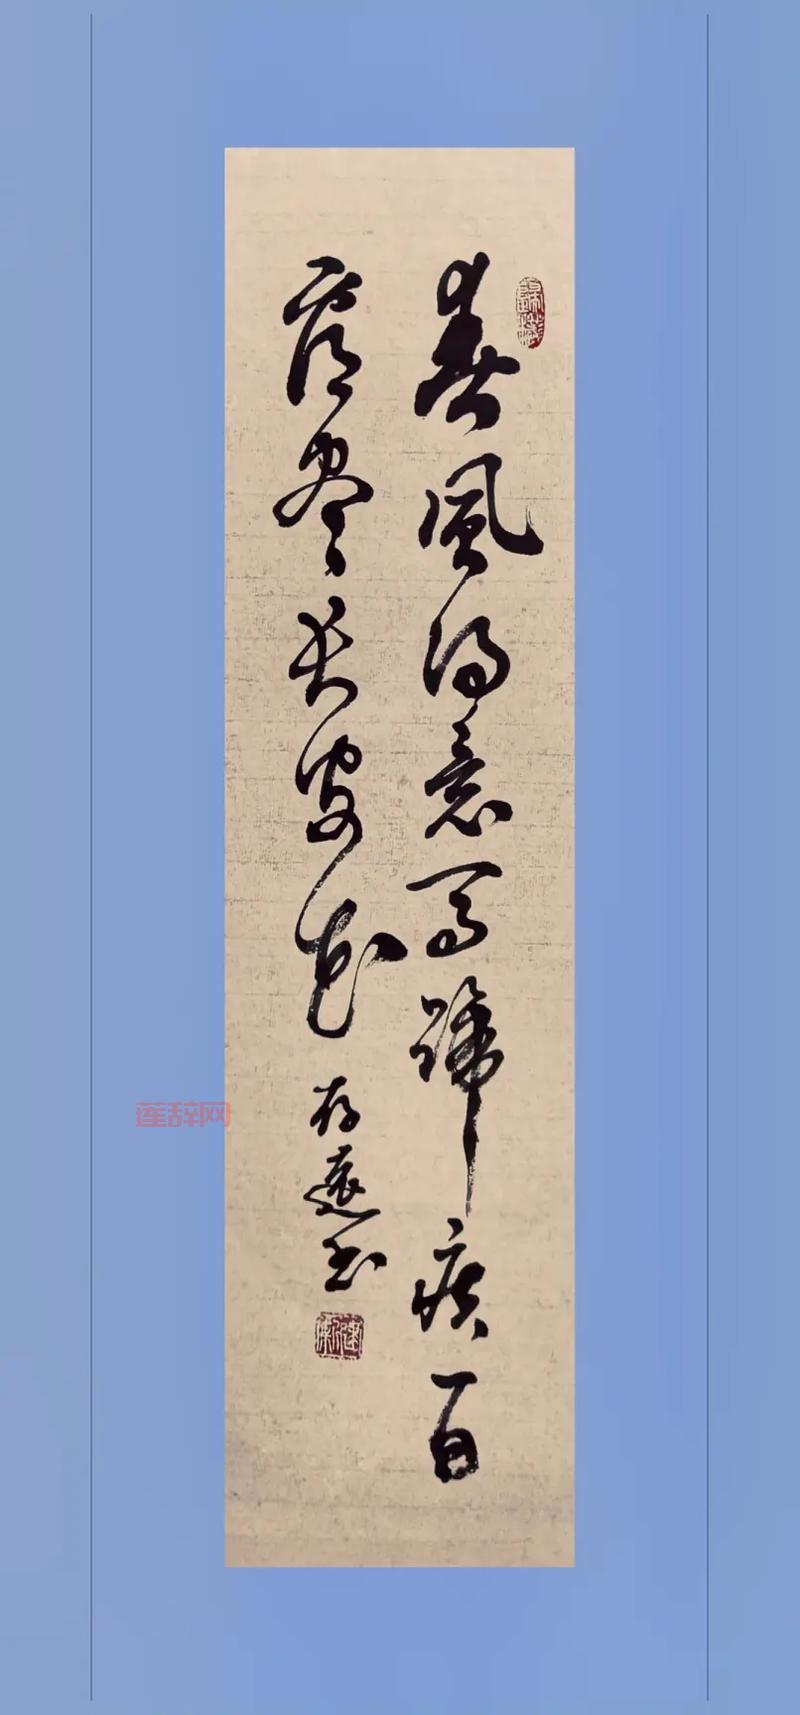 春風得意馬蹄疾一日
看尽长安花
存遠书
莲辞网